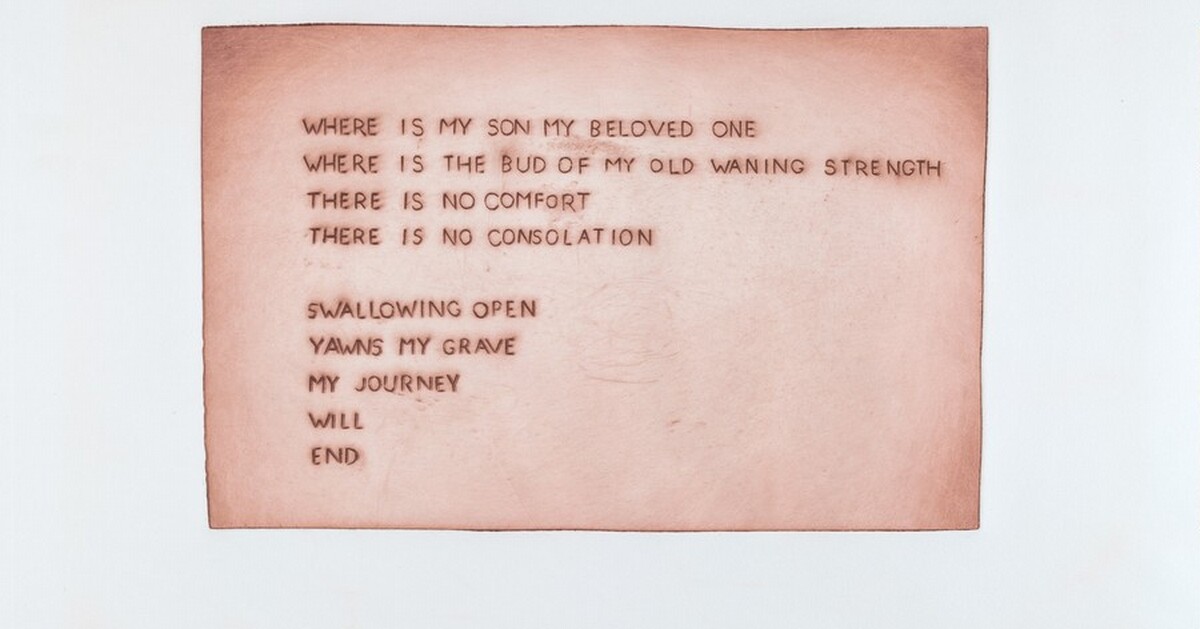 WHERE IS MY SON MY BELOVED ONE
WHERE IS THE BUD OF MY OLD WANING STRENGTH
THERE IS NO COMFORT
THERE IS NO CONSOLATION
SWALLOWING OPEN
YAWNS MY GRAVE
MY JOURNEY
WILL
END